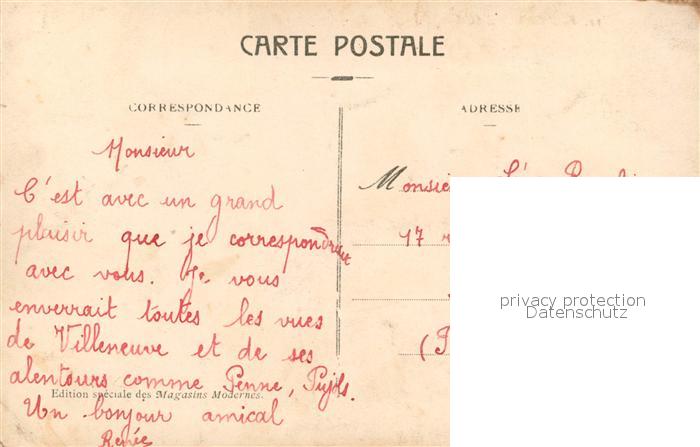 CARTE POSTALE
CORRESPONDANCE
ADRESSE
Monsieur
C'est avec un grand
plaisir que je correspondrai
avec vous. Je vous
enverrait toutes les vues
de Villeneuve et de ses
alentours comme Penne, Pujols.
Edition spéciale des Magasins Modernes.
Un bonjour amical
Renée
17
privacy protection
Datenschutz